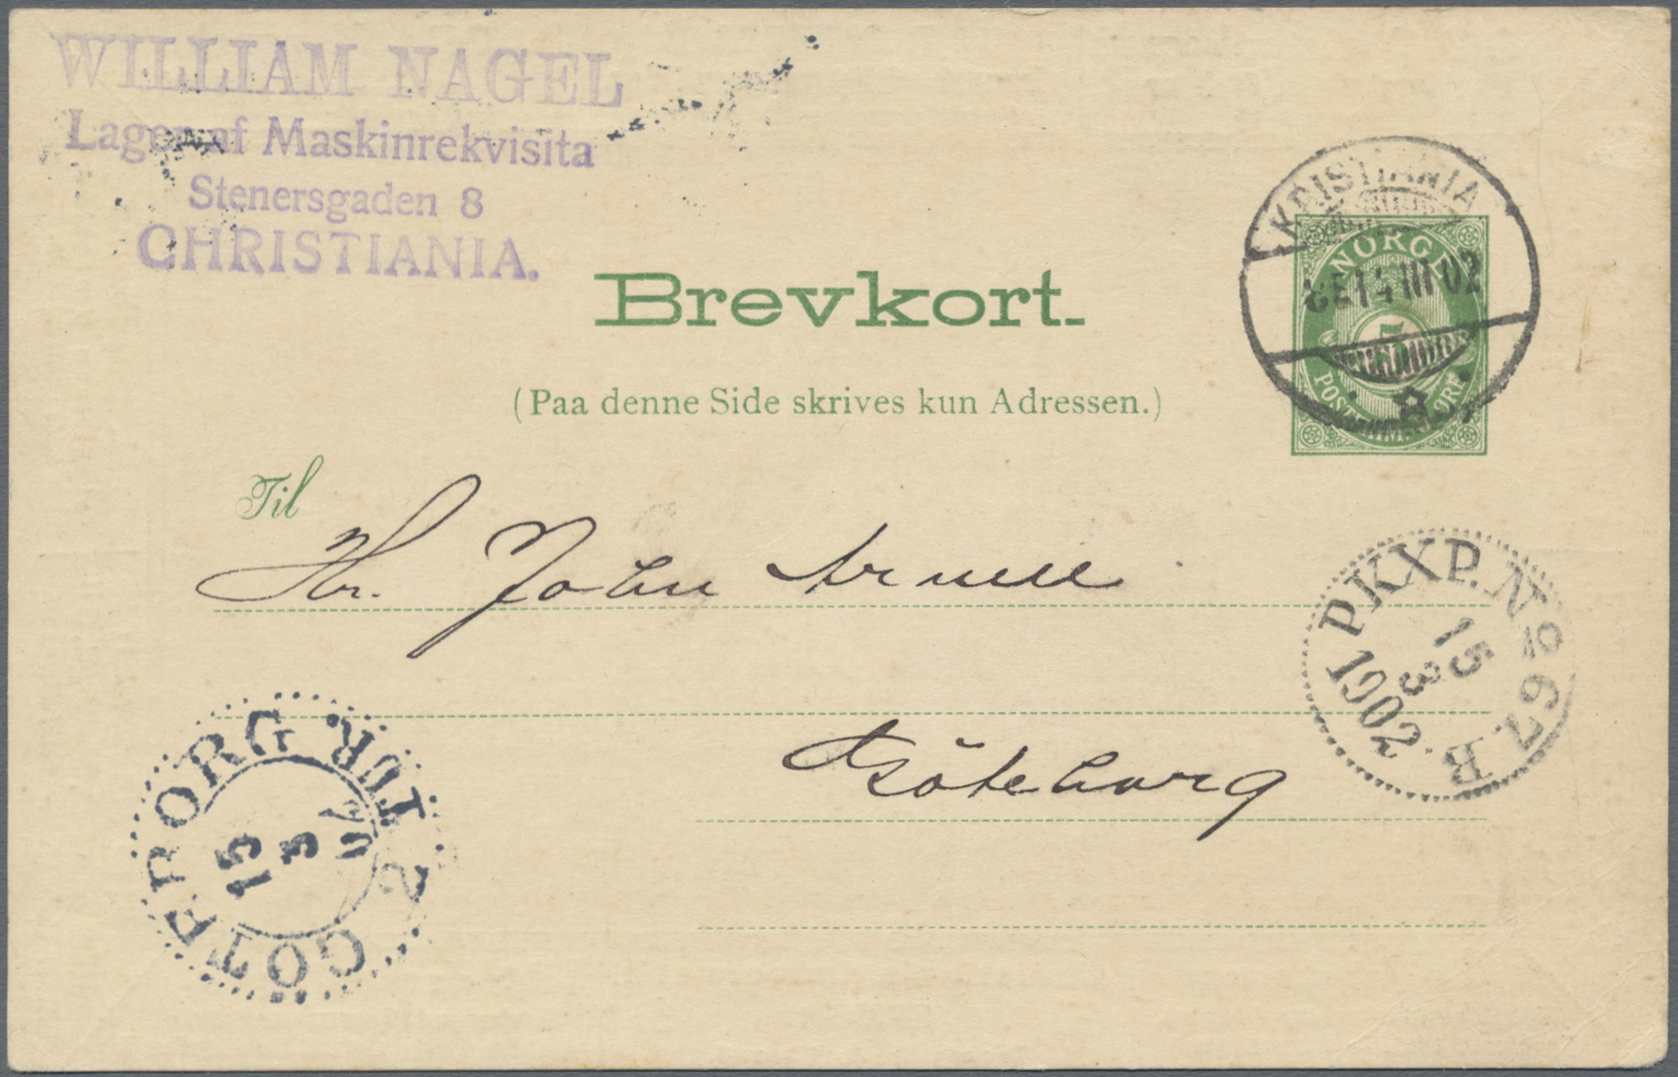 WILLIAM NAGEL
Lager af Maskinrekvisita
Stenersgaden 8
CHRISTIANIA.
KRISTIANIA
14 III 02
NORGE
5
POSTFRIM. ØRE
Brevkort.
(Paa denne Side skrives kun Adressen.)
Til
Hr. John
Göteborg
PKXP. No 67. B.
15
3
1902
GÖTEBORG 2 TUR
15
3
02